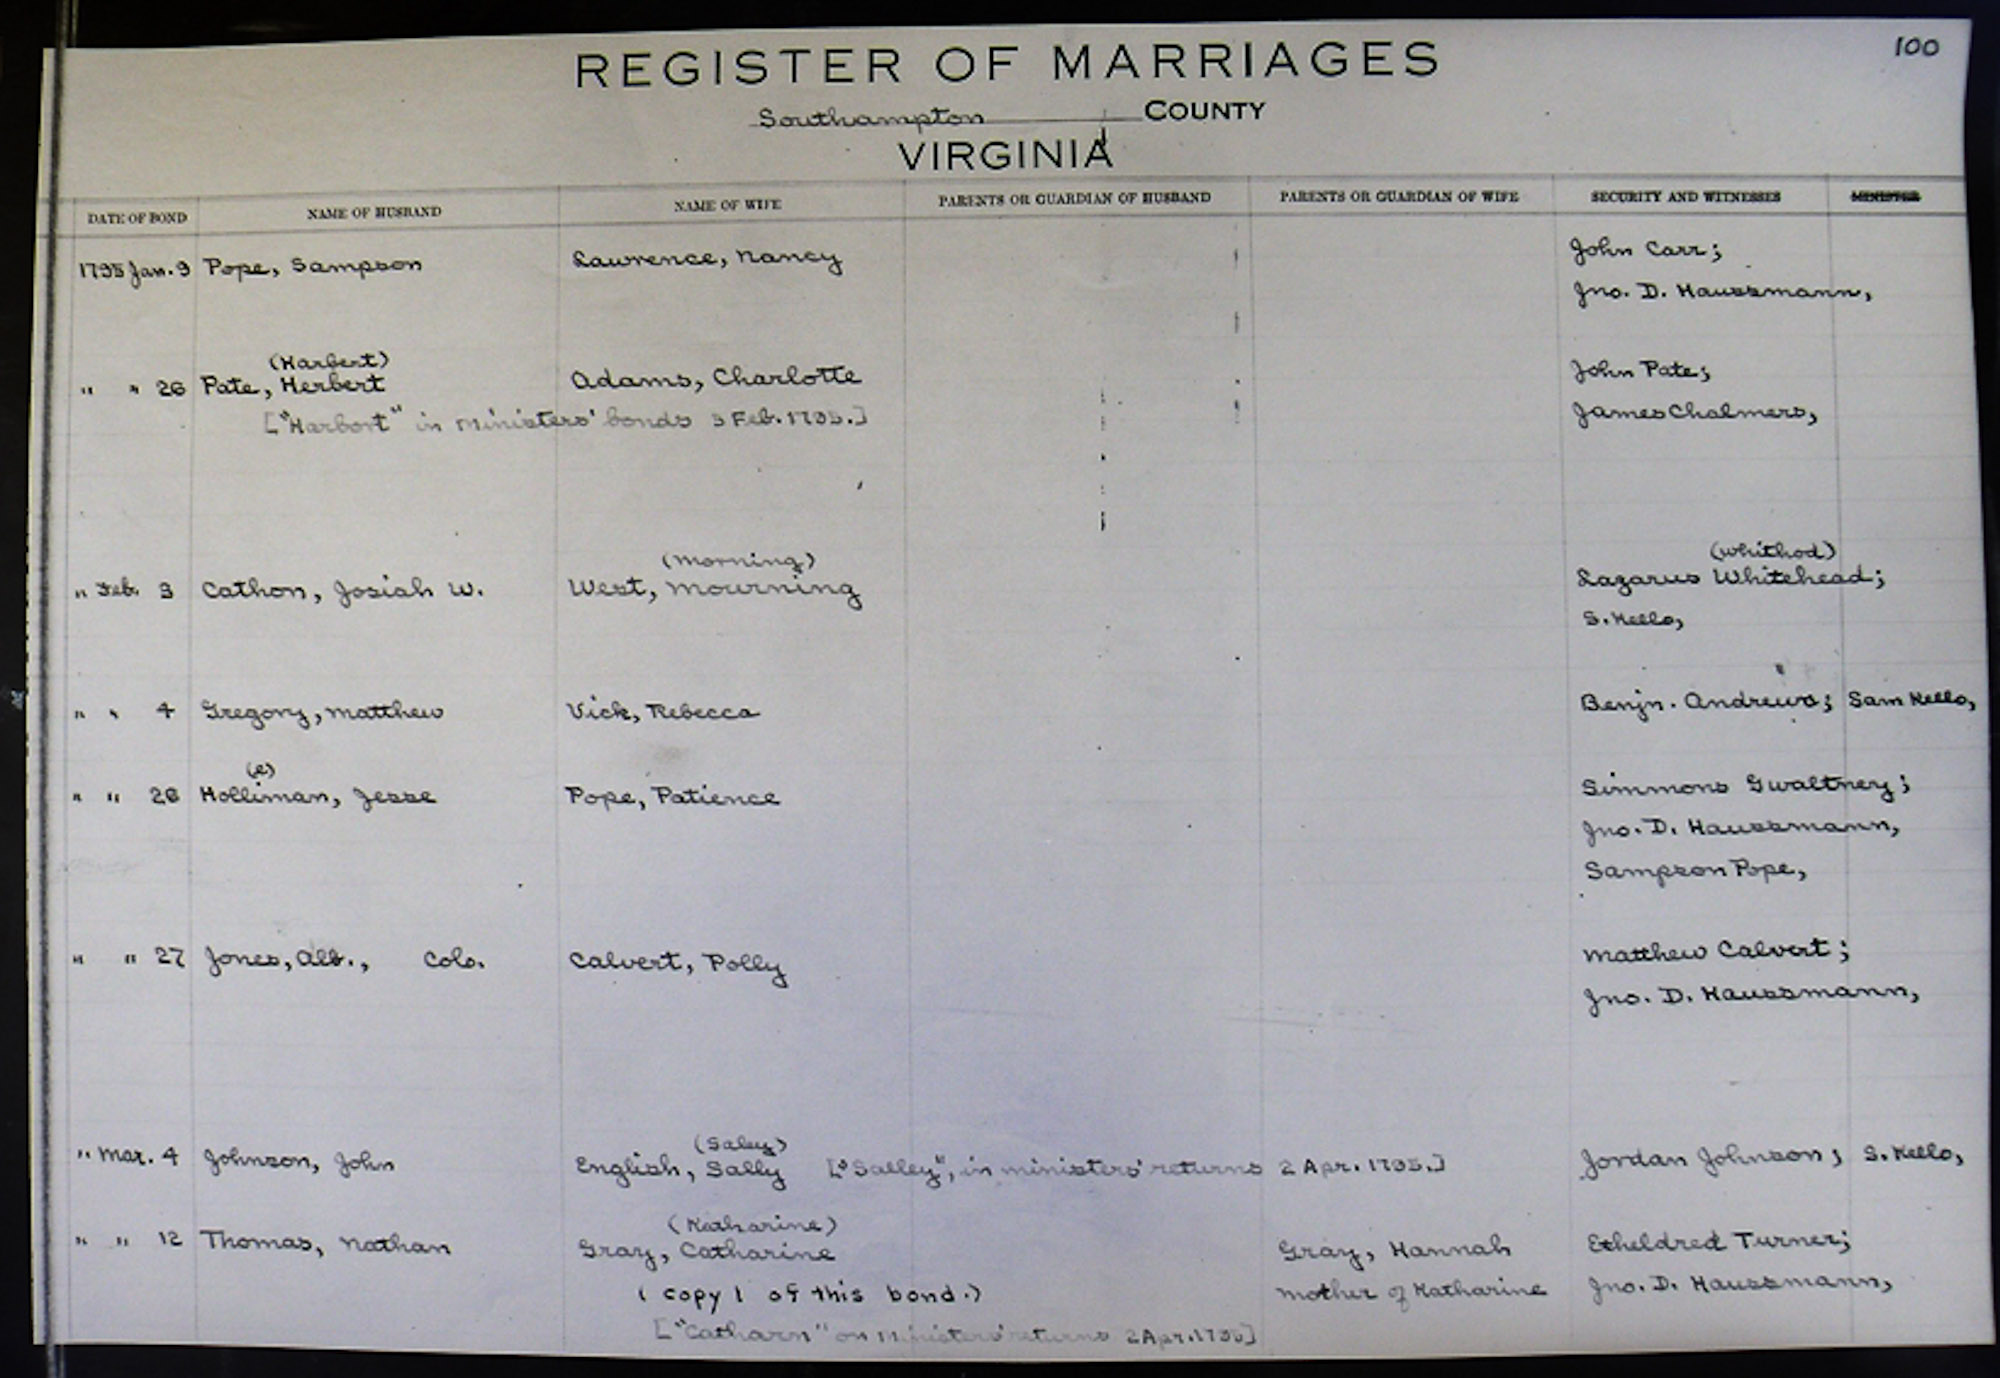 100
REGISTER OF MARRIAGES
Southampton COUNTY
VIRGINIA
DATE OF BOND NAME OF HUSBAND NAME OF WIFE PARENTS OR GUARDIAN OF HUSBAND PARENTS OR GUARDIAN OF WIFE SECURITY AND WITNESSES MINISTER
1795 Jan. 9 Pope, Sampson Lawrence, Nancy John Carr;
Jno. D. Haussmann,
(Harbert)
" " 26 Pate, Herbert Adams, Charlotte John Pate;
["Harbort" in ministers' bonds 3 Feb. 1795.] James Chalmers,
(Morning) (Whithod)
" Feb. 3 Cathon, Josiah W. West, Mourning Lazarus Whitehead;
S. Kello,
" " 4 Gregory, Matthew Vick, Rebecca Benjn. Andrews; Sam Kello,
(e)
" " 26 Holliman, Jesse Pope, Patience Simmons Gwaltney;
Jno. D. Haussmann,
Sampson Pope,
" " 27 Jones, Alb., Colo. Calvert, Polly Matthew Calvert;
Jno. D. Haussmann,
(Saley)
" Mar. 4 Johnson, John English, Sally ["Salley", in ministers' returns 2 Apr. 1795.] Jordan Johnson; S. Kello,
(Katharine)
" " 12 Thomas, Nathan Gray, Catharine Gray, Hannah Etheldred Turner;
(copy 1 of this bond.) mother of Katharine Jno. D. Haussmann,
["Catharn" on ministers' returns 2 Apr. 1795]